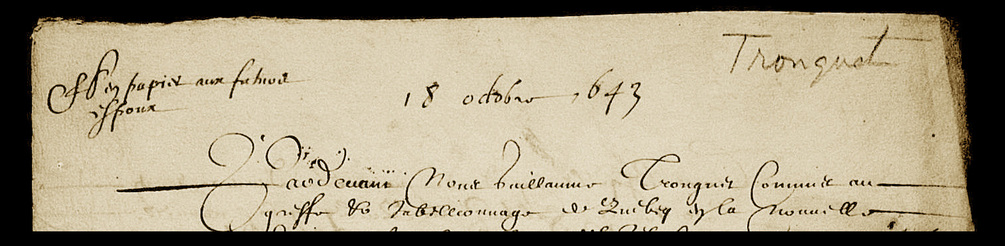 en papier aux futurs
espoux
18 octobre 1643
Tronquet
Pardevant Nous Guillaume Tronquet Commis au
greffe & tabellionnage de Quebeq en la Nouvelle